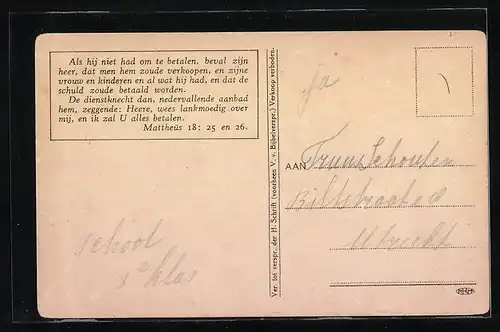 Als hij niet had om te betalen, beval zijn
heer, dat men hem zoude verkoopen, en zijne
vrouw en kinderen en al wat hij had, en dat de
schuld zoude betaald worden.
De dienstknecht dan, nedervallende aanbad
hem, zeggende: Heere, wees lankmoedig over
mij, en ik zal U alles betalen.
Mattheüs 18: 25 en 26.
school
3e klas
Ver. tot verspr. der H. Schrift (voorheen V. v. Bijbelverspr.) Verkoop verboden.
ja
AAN Truus Schouten
Biltstraat 8
Utrecht